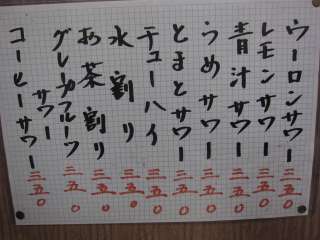 ウーロンサワー 三五0
レモンサワー 三五0
青汁サワー 三五0
うめサワー 三五0
とまとサワー 三五0
チューハイ 三五0
水割り 三五0
お茶割り 三五0
グレープフルーツ
サワー 三五0
コーヒーサワー 三五0